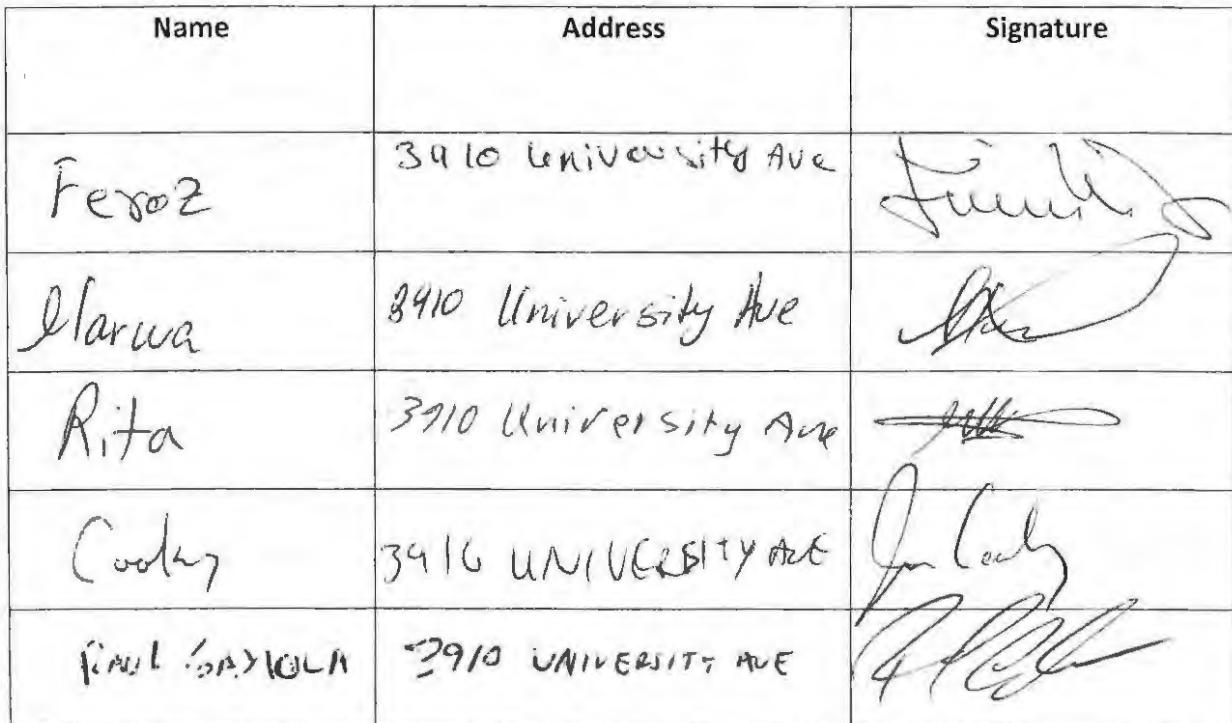 Name Address Signature
Feroz 3910 University Ave
Marwa 3910 University Ave
Rita 3910 University Ave
3916 UNIVERSITY AVE
RAUL GAXIOLA 3910 UNIVERSITY AVE